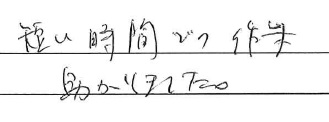 短い時間での作業
助かりました。